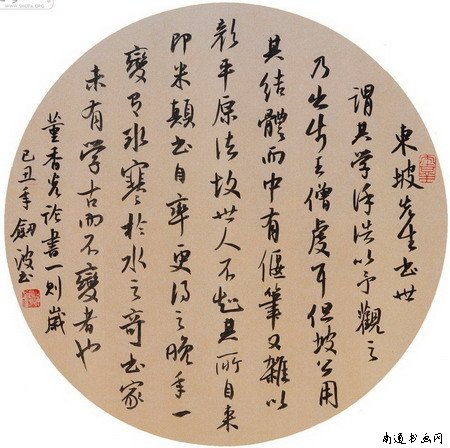 東坡先生书世
謂其学徐浩以予觀之
乃出於王僧虔耳但坡公用
其结體而中有偃筆又雜以
顔平原法故世人不知其所自来
即米颠书自率更得之晚年一
變有冰寒於水之奇书家
未有学古而不變者也
董香光论書一则歲
己丑年劍波书
南通书画网